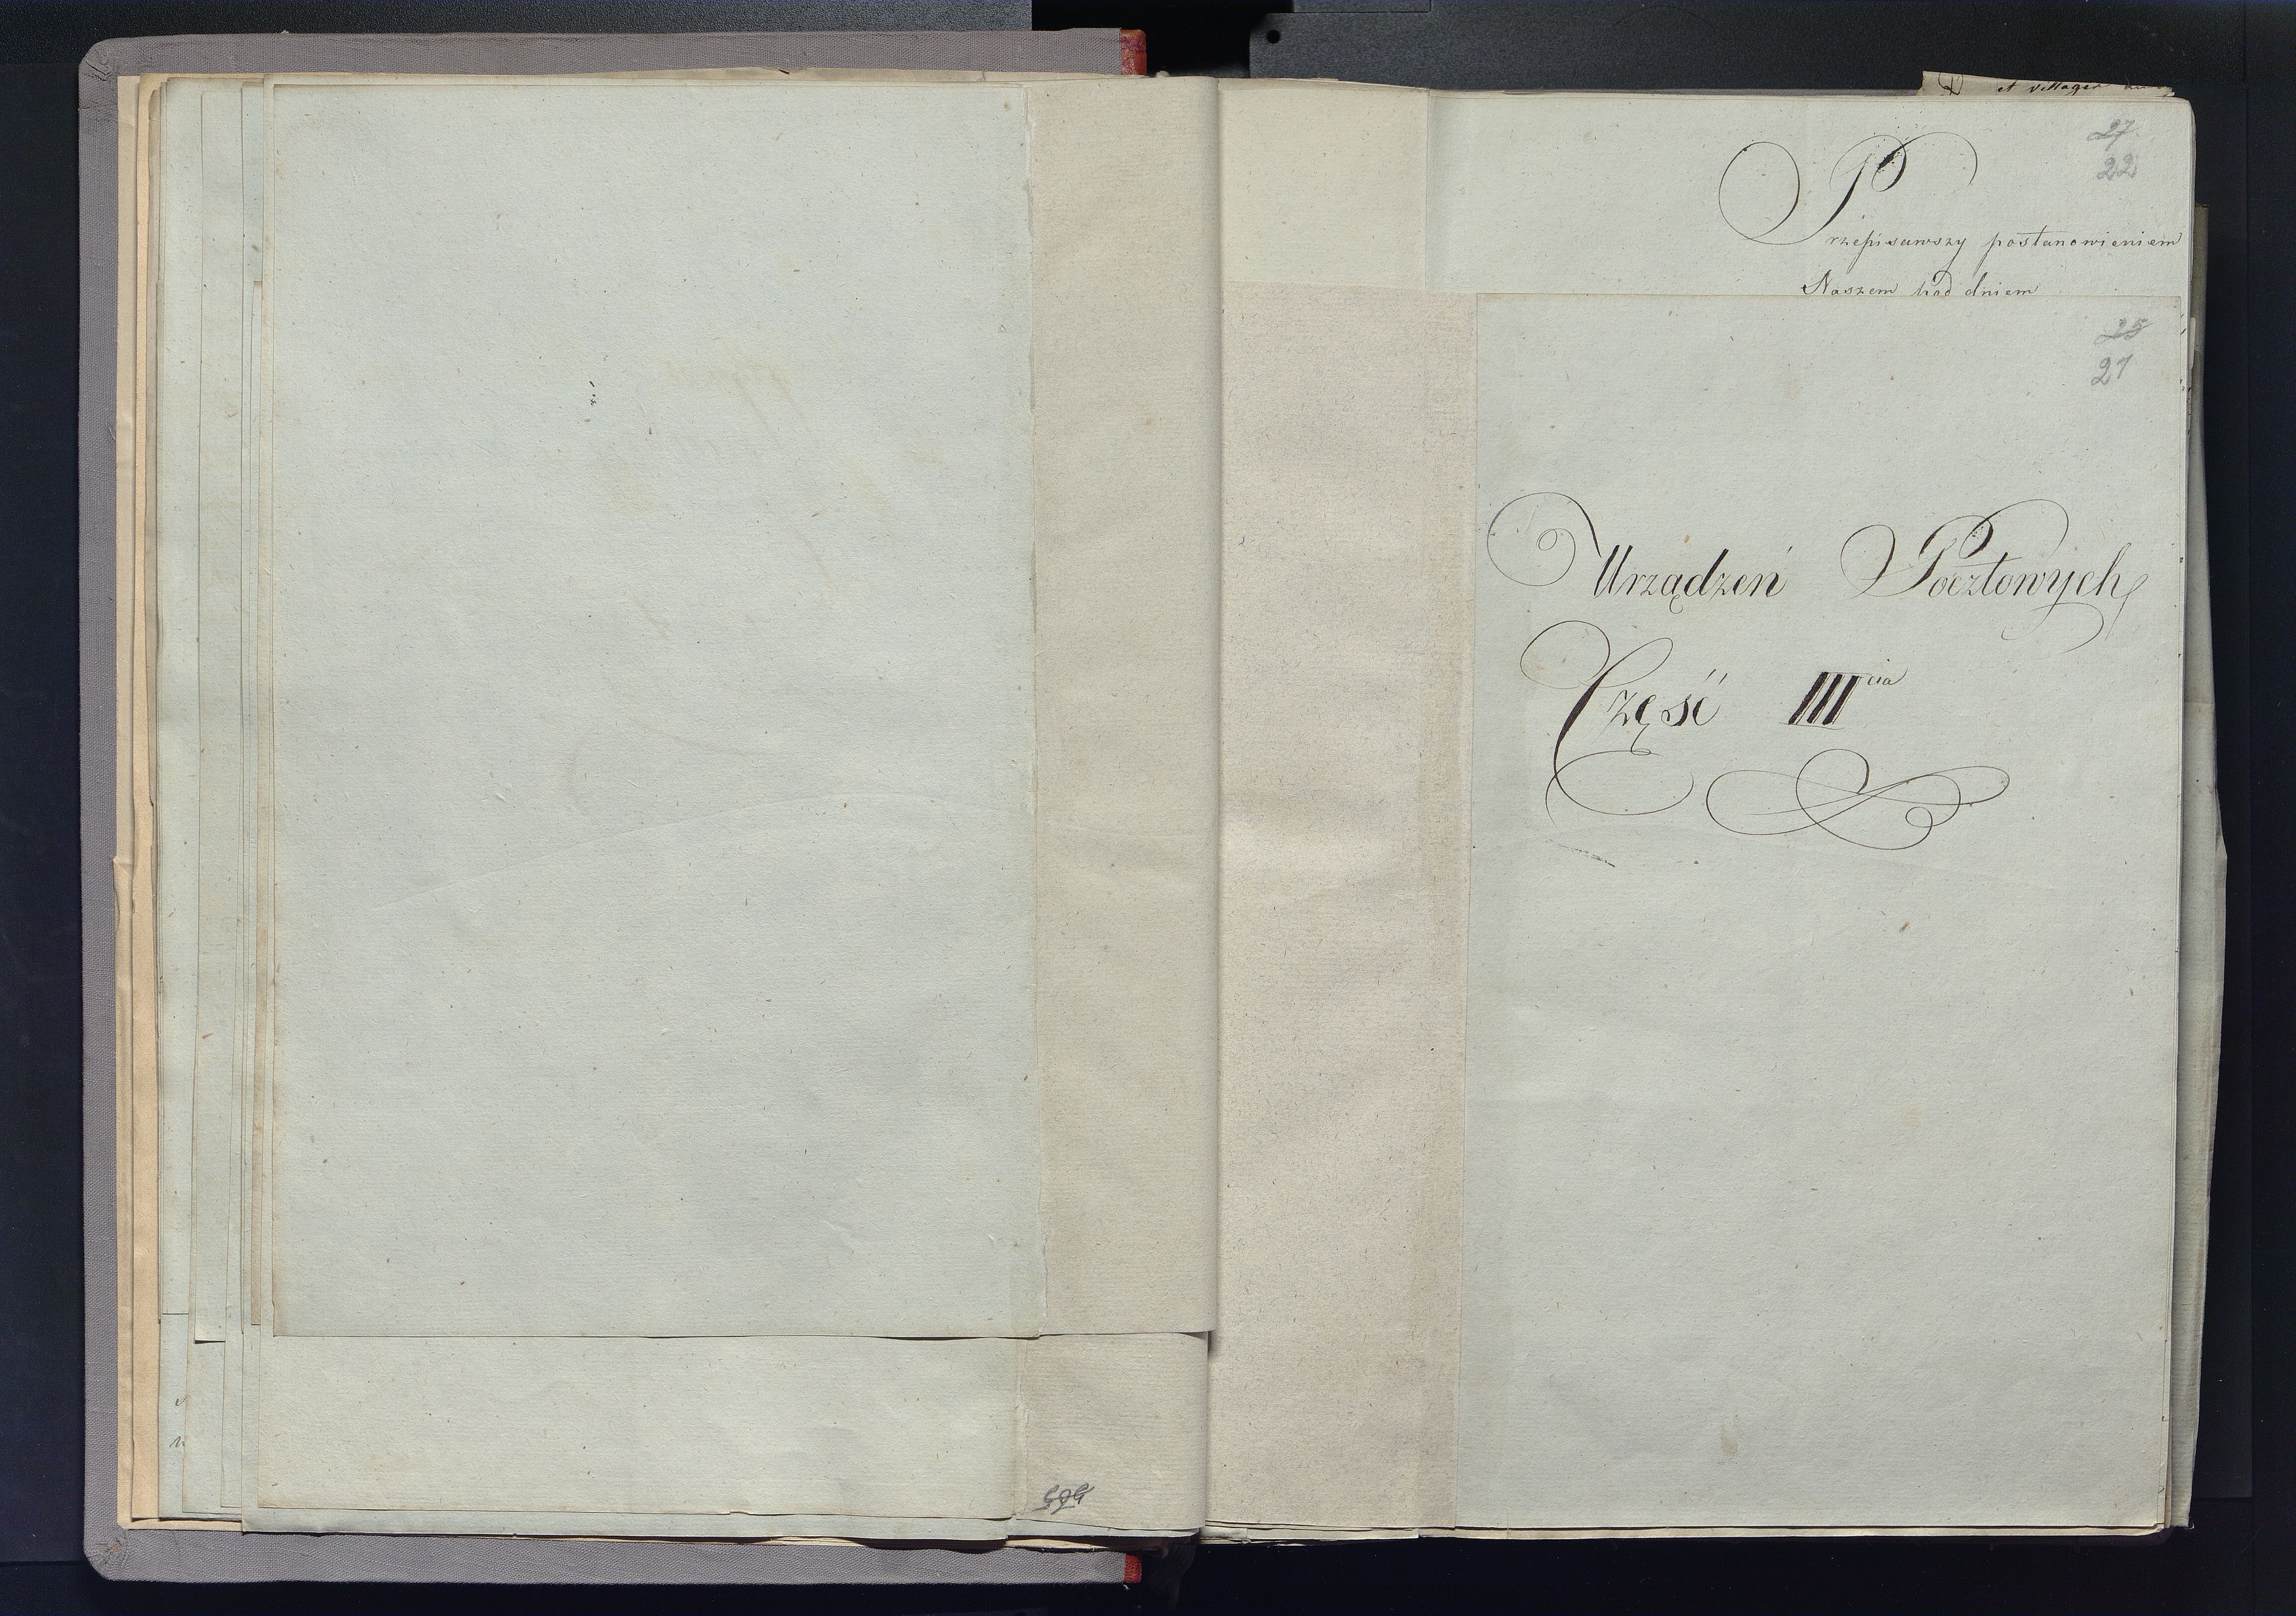 et villages
27
22
Przepisawszy postanowieniem
Naszem pod dniem
25
21
Urządzeń Pocztowych
Część III cia